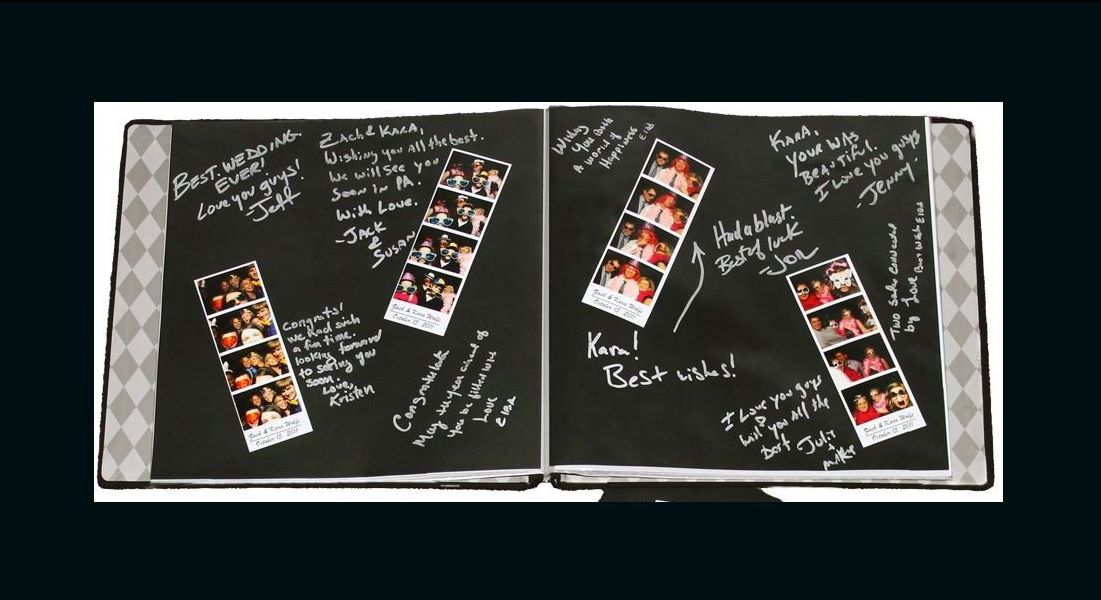 BEST. WEDDING.
EVER!
Love you guys!
-Jeff
Zach & Kara,
Wishing you all the best.
We will see you
soon in PA.
With Love.
-JACK
&
SUSAN
Zach & Kara Wolfe
October 15, 2011
Congrats!
we had such
a fun time.
looking forward
to seeing you
soon.
Love,
Kristen
Zach & Kara Wolfe
October 15, 2011
May the years ahead of
you be filled
Love
Wishing
You Both
A world of
Happiness
Zach & Kara Wolfe
October 15, 2011
KARA,
YOUR WAS
BEAUTIFUL.
I Love you guys
-JENNY
Had a blast.
Best of luck
-JON
Kara!
Best wishes!
TWO
by Love
I Love you guys
wish you All the
best -July
+
mike
Zach & Kara Wolfe
October 15, 2011